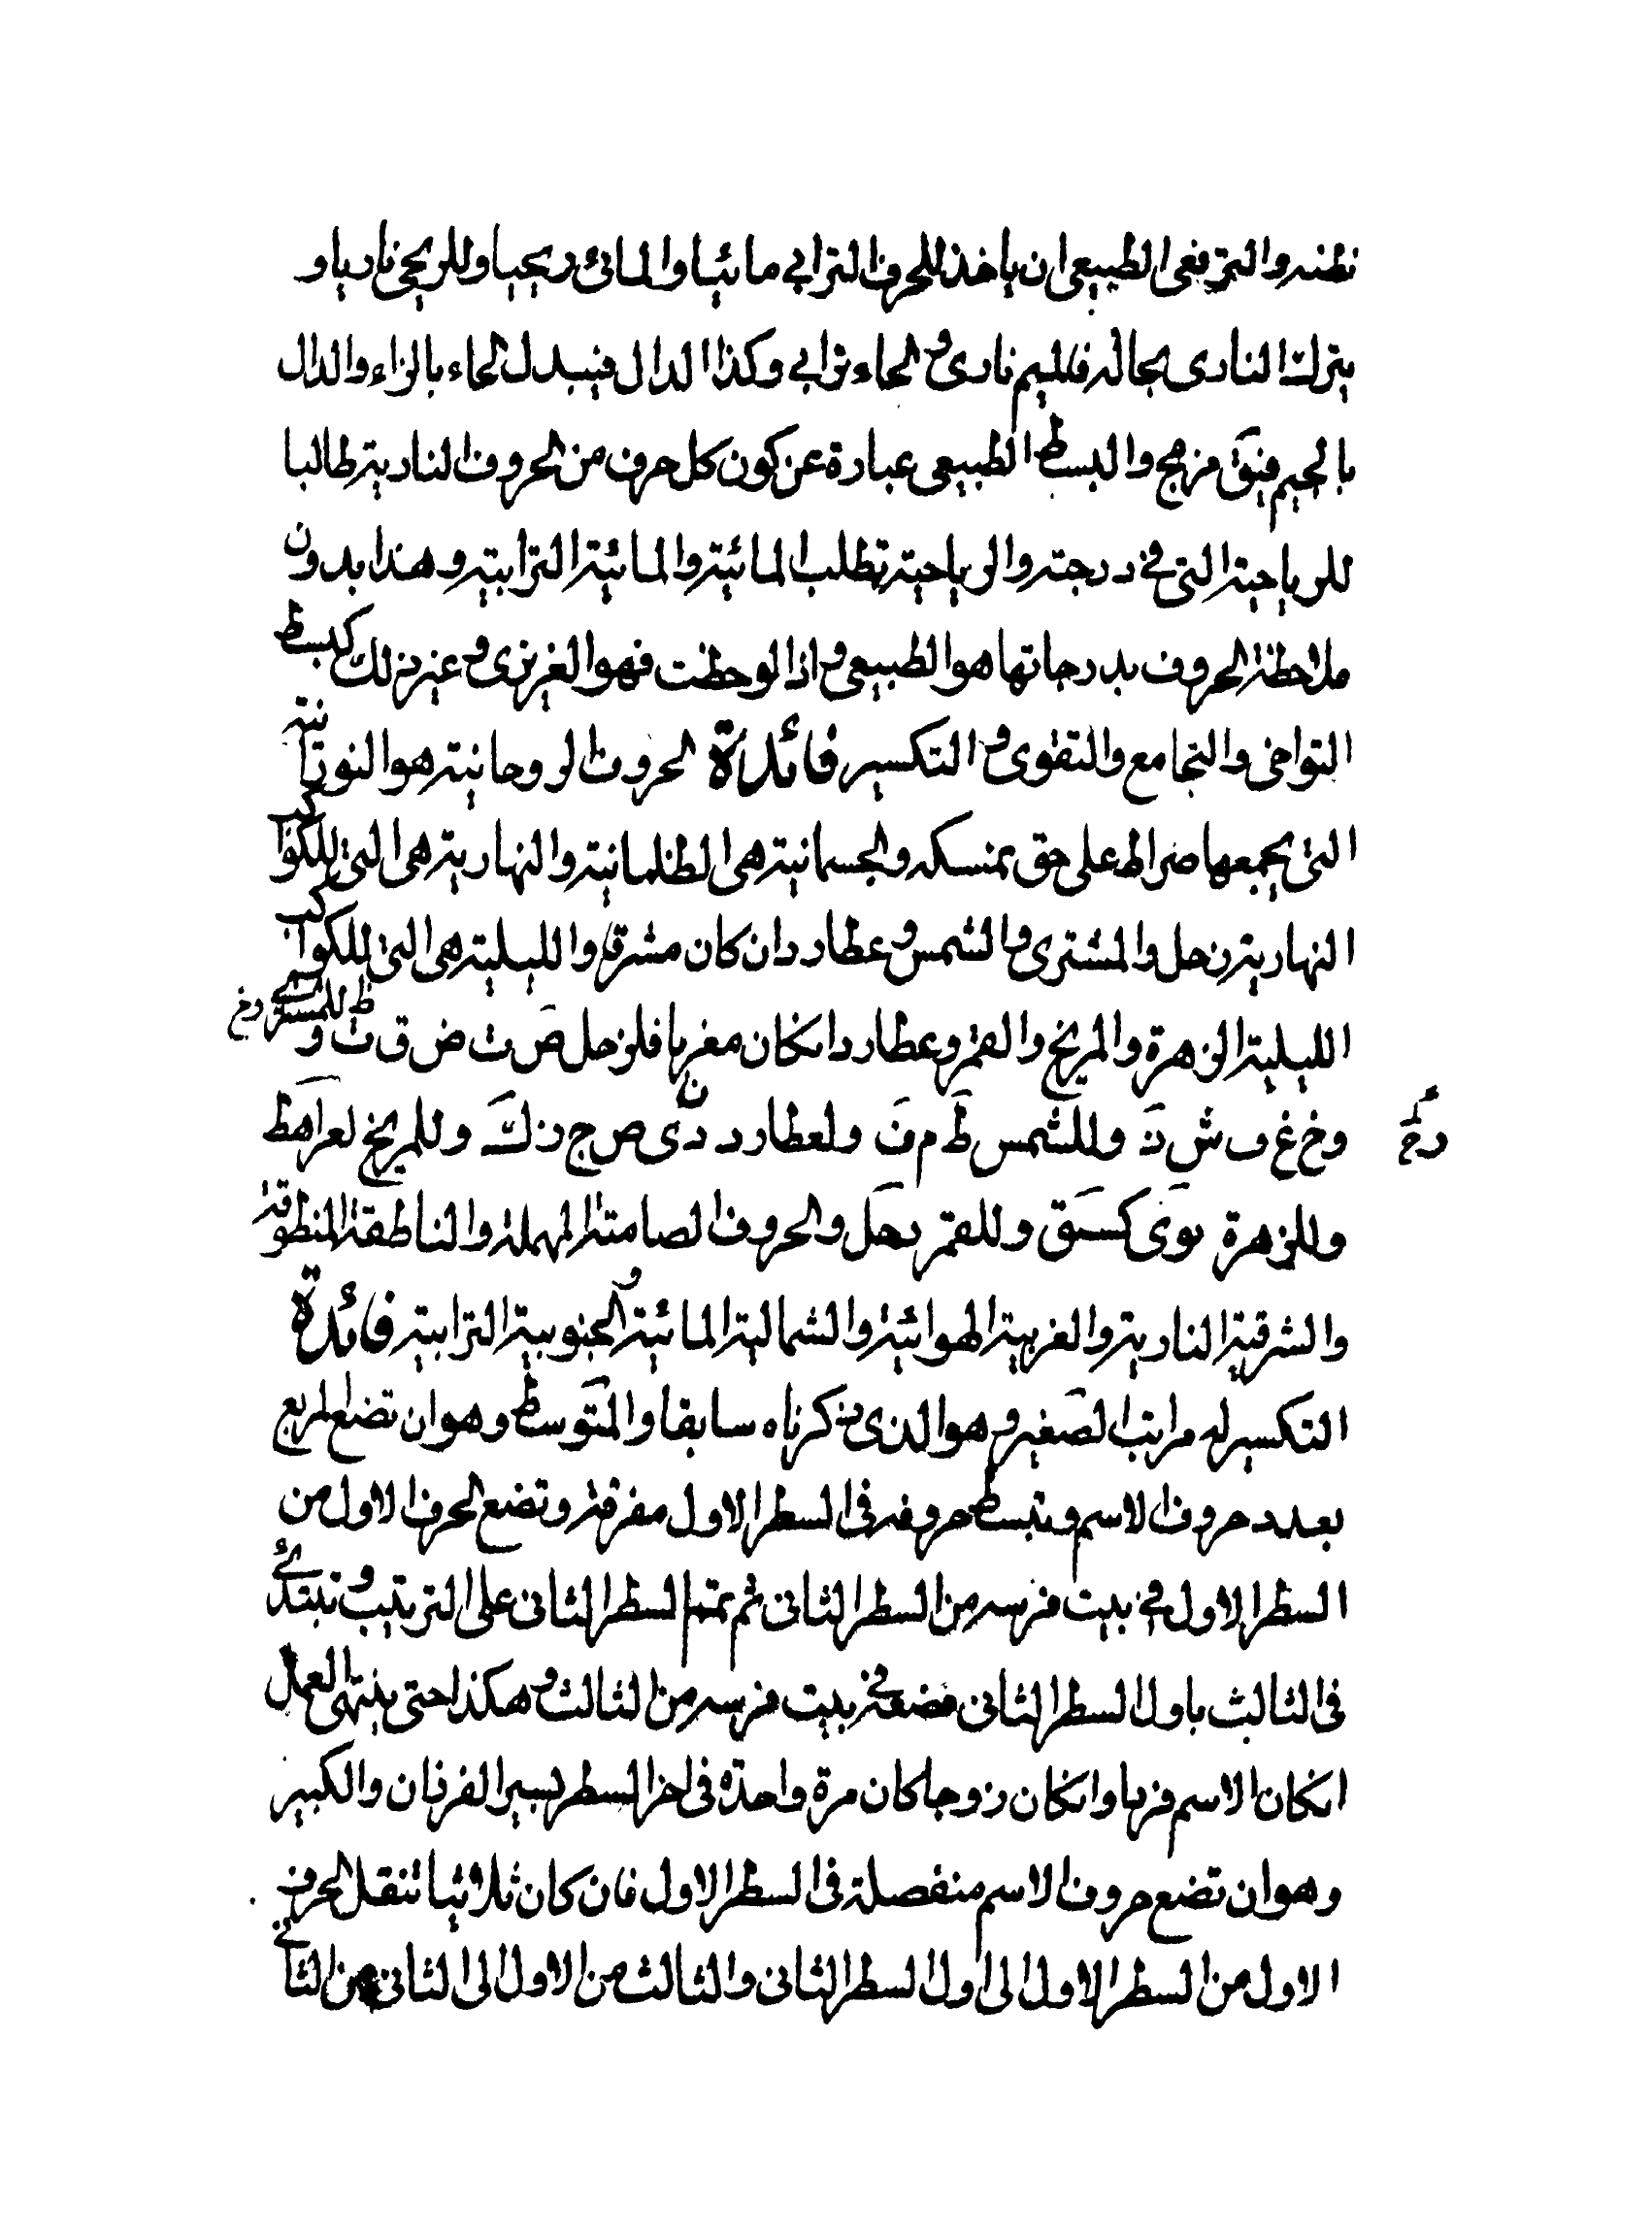 والترفعى الطبيعى ان ياخذ للحرف الترابي مائيا والمائى ريحيا وللريحى ناريا و
يترك النارى بحاله فالميم نارى والحاء ترابي وكذا الدال فيبدل الحاء بالزاء والدال
بالجيم فيق مزمج والبسط الطبيعى عبارة عن كون كل حرف من الحروف النارية طالبا
للرياحية التى في درجته والرياحية تطلب المائية والمائية الترابية وهذا بدون
ملاحظة الحروف بدرجاتها هو الطبيعى واذا لوحظت فهو الغريزى وغير ذلك كبسط
التواخى والتجامع والتقوى والتكسير فائدة الحروف الروحانية هو النورانية
التى يجمعها صراط على حق نمسكه والجسمانية هى الظلمانية والنهارية هى التى للكواكب
النهارية زحل والمشترى والشمس وعطارد ان كان مشرقا والليلية هى التى للكواكب
الليلية الزهرة والمريخ والقمر وعطارد انكان مغربا فلزحل ص ث ض ق ط وللمشترى
وخ غ ف ش ذ وللشمس ظ م ف ولعطارد د ن ى ص ج ز ك وللمريخ
رخ
وللزهرة وللقمر والحروف الصامتة المهملة والناطقة المنطوقة
والشرقية النارية والغربية الهوائية والشمالية المائية والجنوبية الترابية فائدة
التكسير له مراتب الصغير وهو الذى ذكرناه سابقا والمتوسط وهو ان تضع المربع
بعدد حروف الاسم وتبسط حروفه فى السطر الاول مفرقة وتضع الحرف الاول من
السطر الاول في بيت فرسه من السطر الثانى ثم تمتم السطر الثانى على الترتيب وتبتدئ
فى الثالث باول السطر الثانى فتضعه في بيت فرسه من الثالث وهكذا حتى ينتهى العمل
انكان الاسم فردا وانكان زوجا كان مرة واحدة فى اخر السطر يسير الفرزان والكبير
وهو ان تضع حروف الاسم منفصلة فى السطر الاول فان كان ثلاثيا تنقل الحرف
الاول من السطر الاول الى اول السطر الثانى والثالث من الاول الى الثانى من الثانى